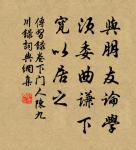 與朋友論學
須委曲謙下
寬以居之
傳習錄卷下門人陳九
川錄詞典網集